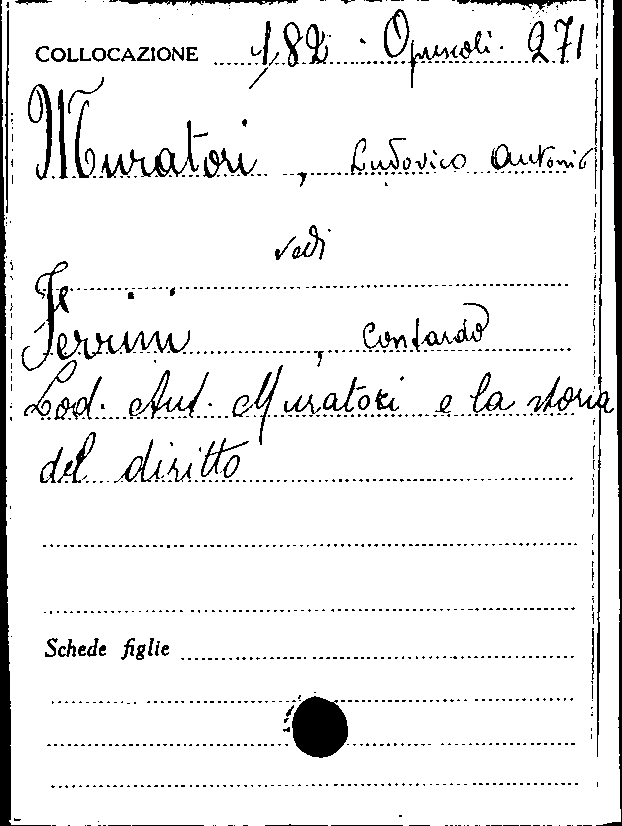 COLLOCAZIONE 182 . Opuscoli . 271
Muratori , Ludovico Antonio
vedi
Ferrini , Contardo
Lod. Ant. Muratori e la storia
del diritto
Schede figlie